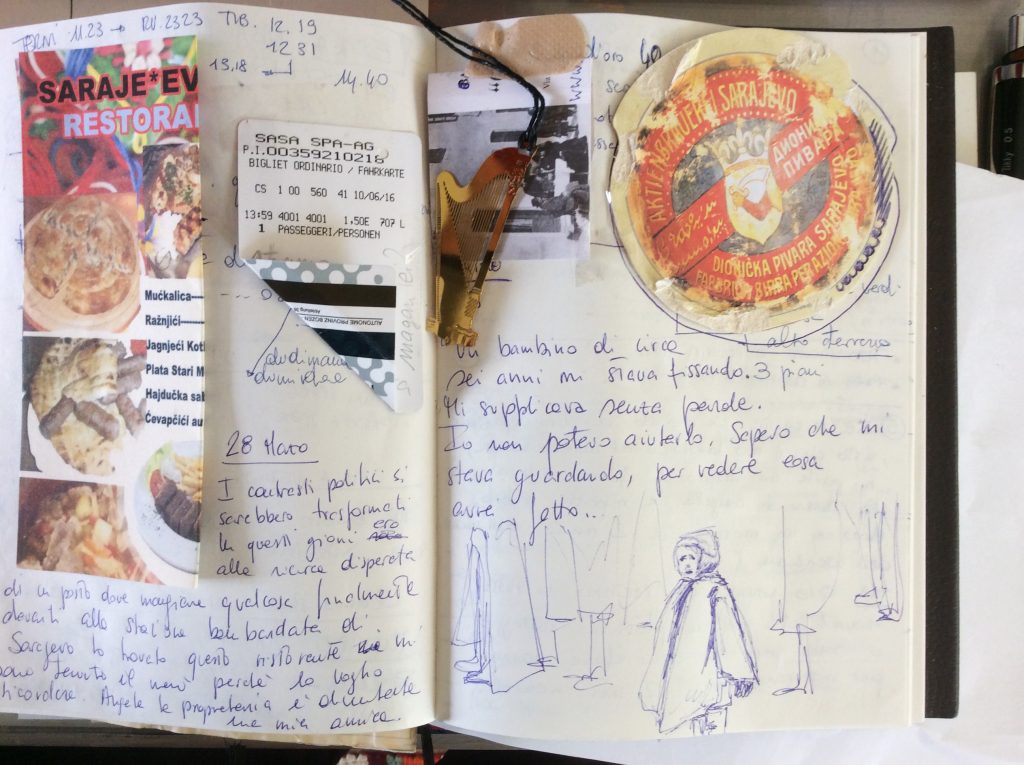 TERM 11.23 → RV. 23.23
TVB. 12.19
12 31
13,18
14.40
SARAJE*EV
RESTORA
Mućkalica
Ražnjići
Jagnjeći Kotl
Plata Stari M
Hajdučka sab
Ćevapčići au
SASA SPA-AG
P.I.00359210218
BIGLIET ORDINARIO / FAHRKARTE
CS 1 00 560 41 10/06/16
13:59 4001 4001 1,50E 707 L
1 PASSEGGERI/PERSONEN
AUTONOME PROVINZ BOZEN
Abteilung
28 Marzo
I contrasti politici si
sarebbero trasformati
In questi giorni ero
alla ricerca disperata
di un posto dove mangiare qualcosa finalmente
davanti alla stazione bombardata di
Sarajevo ho trovato questo ristorante mi
sono tenuto il menù perché lo voglio
ricordare. Angela la proprietaria è diventata
una mia amica.
d'oro 40
www
AKTIENBRAUEREI SARAJEVO
ДИОНИ
ПИВАРА
DIONIČKA PIVARA SARAJEVO
FABBRICA BIRRA PER AZIONI
verdi
alto terreno
3 piani
Un bambino di circa
sei anni mi stava fissando.
Mi supplicava senza parole.
Io non potevo aiutarlo. Sapevo che mi
stava guardando, per vedere cosa
avrei fatto..
Tikky 0.5